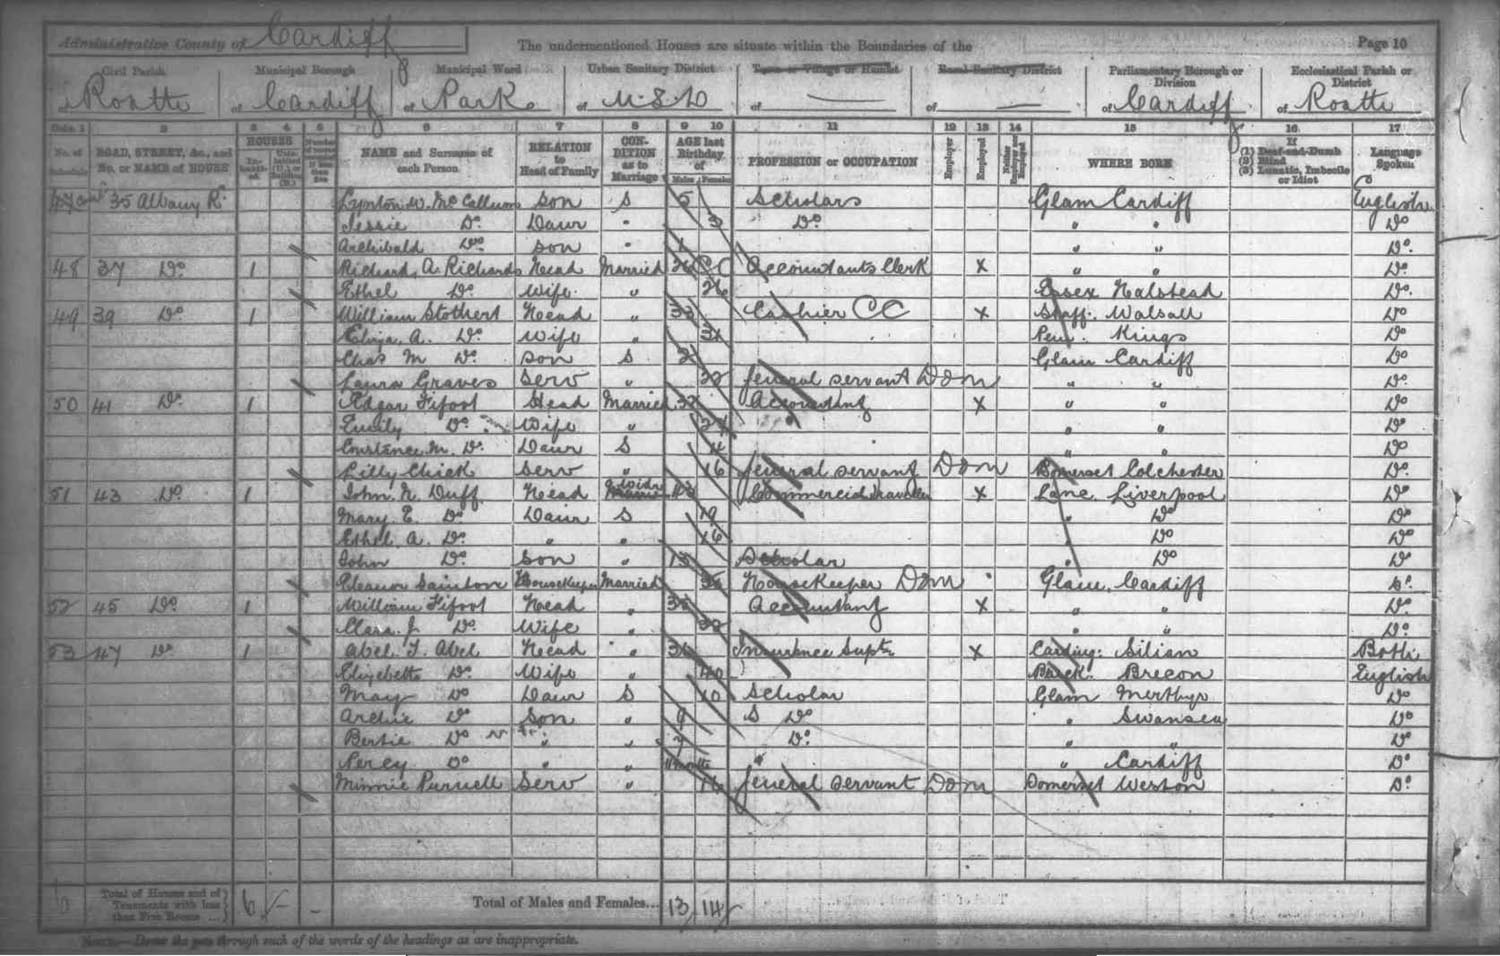 Administrative County of Cardiff
The undermentioned Houses are situate within the Boundaries of the
Page 10
Civil Parish Municipal Borough Municipal Ward Urban Sanitary District Town or Village or Hamlet Rural Sanitary District Parliamentary Borough or Division Ecclesiastical Parish or District
of Roath of Cardiff of Park of U.S.D of — of — of Cardiff of Roath
Cols. 1 2 3 4 5 6 7 8 9 10 11 12 13 14 15 16 17
No. of Schedule ROAD, STREET, &c., and No. or NAME of HOUSE HOUSES NAME and Surname of each Person RELATION to Head of Family CONDITION as to Marriage AGE last Birthday of Males Females PROFESSION or OCCUPATION Employer Employed Neither Employer nor Employed WHERE BORN If (1) Deaf-and-Dumb (2) Blind (3) Lunatic, Imbecile or Idiot Language Spoken
35 Albany Rd Lynton W. McCallum Son S 5 Scholars Glam Cardiff English
Jessie Do Daur " 3 Do " " Do
Archibald Do Son " 1 " " Do
48 37 Do 1 Richard A. Richards Head Married 26 Accountants Clerk X " " Do
Ethel Do Wife " 26 Essex Halstead Do
49 39 Do 1 William Stothert Head " 33 Cashier CC X Staff. Walsall Do
Eliza. A. Do Wife " 31 Kings Do
Chas M Do Son S 2 Glam Cardiff Do
Laura Graves Serv " General servant Dom " " Do
50 41 Do 1 Edgar Fifoot Head Married 32 X " " Do
Emily Do Wife " 24 " " Do
Constance. M. Do Daur S 4 " " Do
Lilly Chick Serv " 16 General servant Dom Somerset Colchester Do
51 43 Do 1 John N. Duff Head Widr 43 Commercial Traveller X Lanc. Liverpool Do
Mary E. Do Daur S 19 " Do Do
Ethel. A. Do " " 16 " Do Do
John Do Son " 13 Scholar " Do Do
Eleanor Housekeeper Married 35 Housekeeper Dom Glam. Cardiff Do
52 45 Do 1 William Fifoot Head " 35 Accountant X " " Do
Clara. J. Do Wife " 32 " " Do
53 47 Do 1 Abel. J. Abel Head " Insurance Supt X Carding: Silian Both
Elizabeth Do Wife " 40 Breck. Brecon English
May Do Daur S 10 Scholar Glam Merthyr Do
Archie Do Son " 9 S Do " Swansea Do
Bertie Do " " 7 Do " " Do
Percy Do " " " Cardiff Do
Minnie Purnell Serv " 16 General servant Dom Somerset Weston Do
6 Total of Houses and of Tenements with less than Five Rooms ... 6 – Total of Males and Females... 13 14
NOTE.—Draw the pen through such of the words of the headings as are inappropriate.